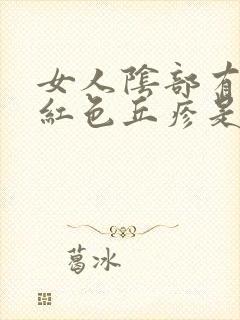 女人陰部有
紅色丘疹是
葛冰